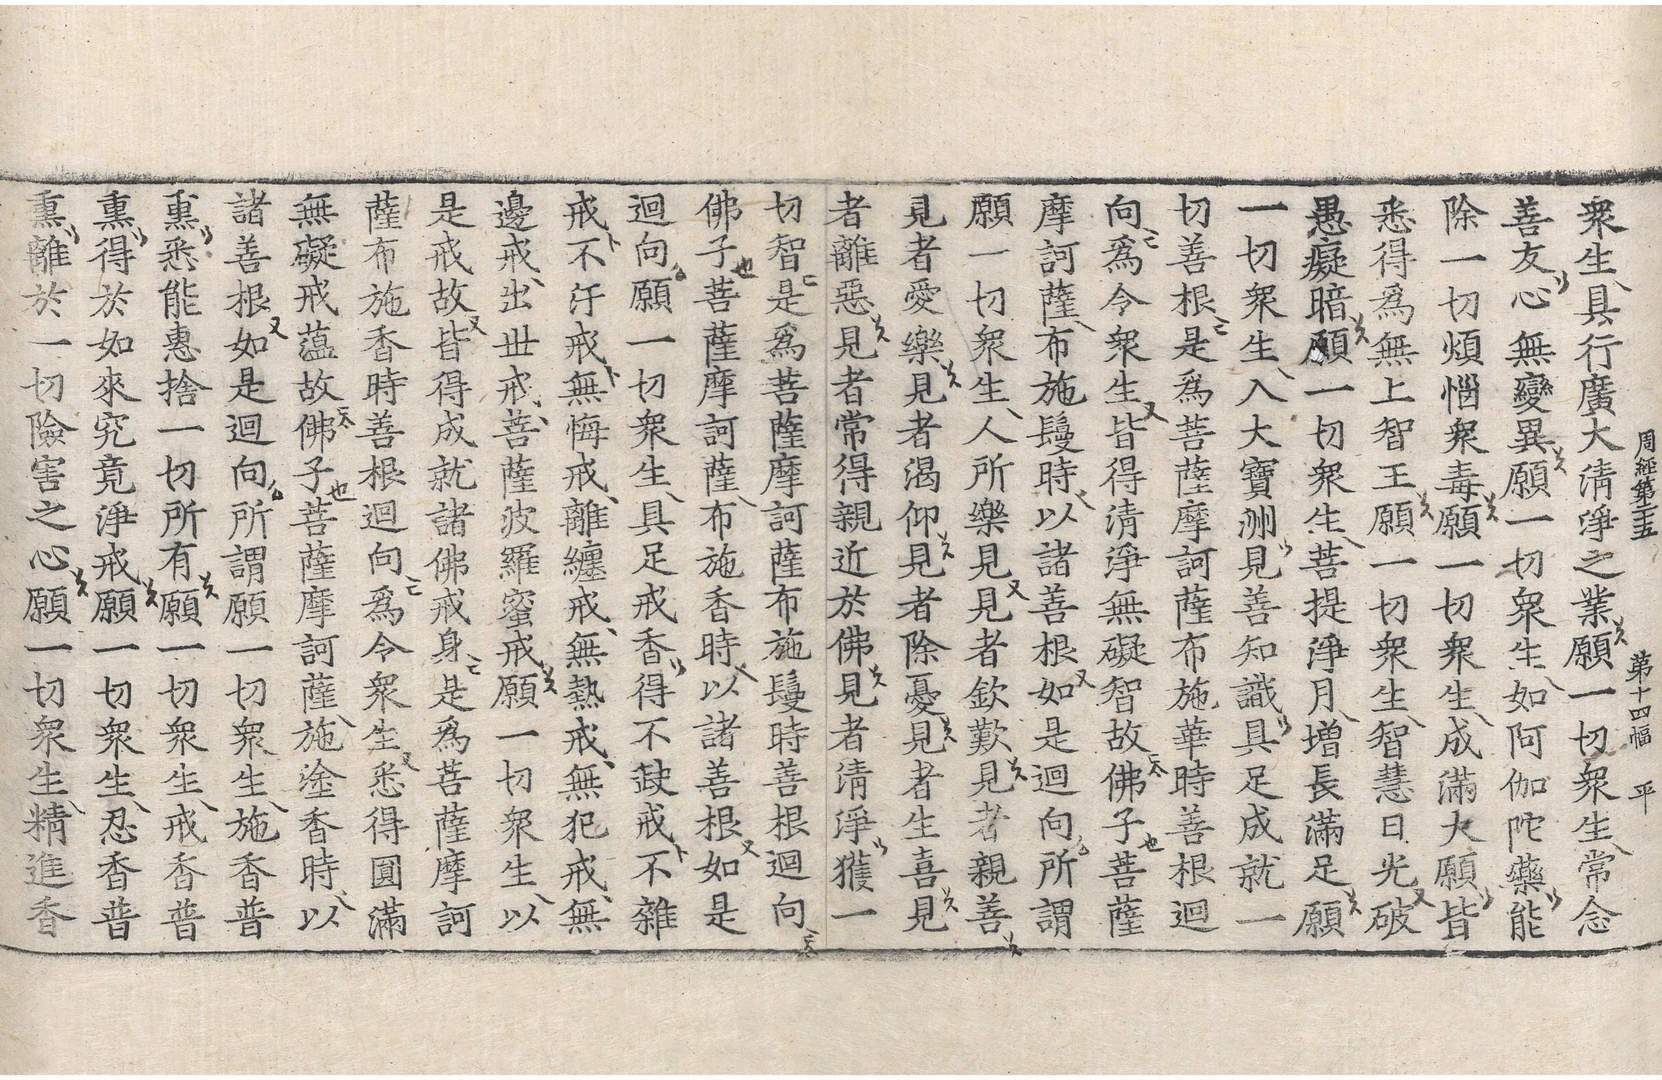 周經第二十五 第十四幅 平
衆生具行廣大清淨之業願一切衆生常念
善友心無變異願一切衆生如阿伽陀藥能
除一切煩惱衆毒願一切衆生成滿大願皆
悉得爲無上智王願一切衆生智慧日光破
愚癡暗願一切衆生菩提淨月增長滿足願
一切衆生入大寶洲見善知識具足成就一
切善根是爲菩薩摩訶薩布施華時善根迴
向爲令衆生皆得清淨無礙智故佛子菩薩
摩訶薩布施鬘時以諸善根如是迴向所謂
願一切衆生人所樂見見者欽歎見者親善
見者愛樂見者渴仰見者除憂見者生喜見
者離惡見者常得親近於佛見者清淨獲一
切智是爲菩薩摩訶薩布施鬘時善根迴向
佛子菩薩摩訶薩布施香時以諸善根如是
迴向願一切衆生具足戒香得不𡙇戒不雜
戒不汙戒無悔戒離纏戒無熱戒無犯戒無
邊戒出世戒菩薩波羅蜜戒願一切衆生以
是戒故皆得成就諸佛戒身是爲菩薩摩訶
薩布施香時善根迴向爲令衆生悉得圓滿
無礙戒蕰故佛子菩薩摩訶薩施塗香時以
諸善根如是迴向所謂願一切衆生施香普
熏悉能惠捨一切所有願一切衆生戒香普
熏得於如來究竟淨戒願一切衆生忍香普
熏離於一切險害之心願一切衆生精進香